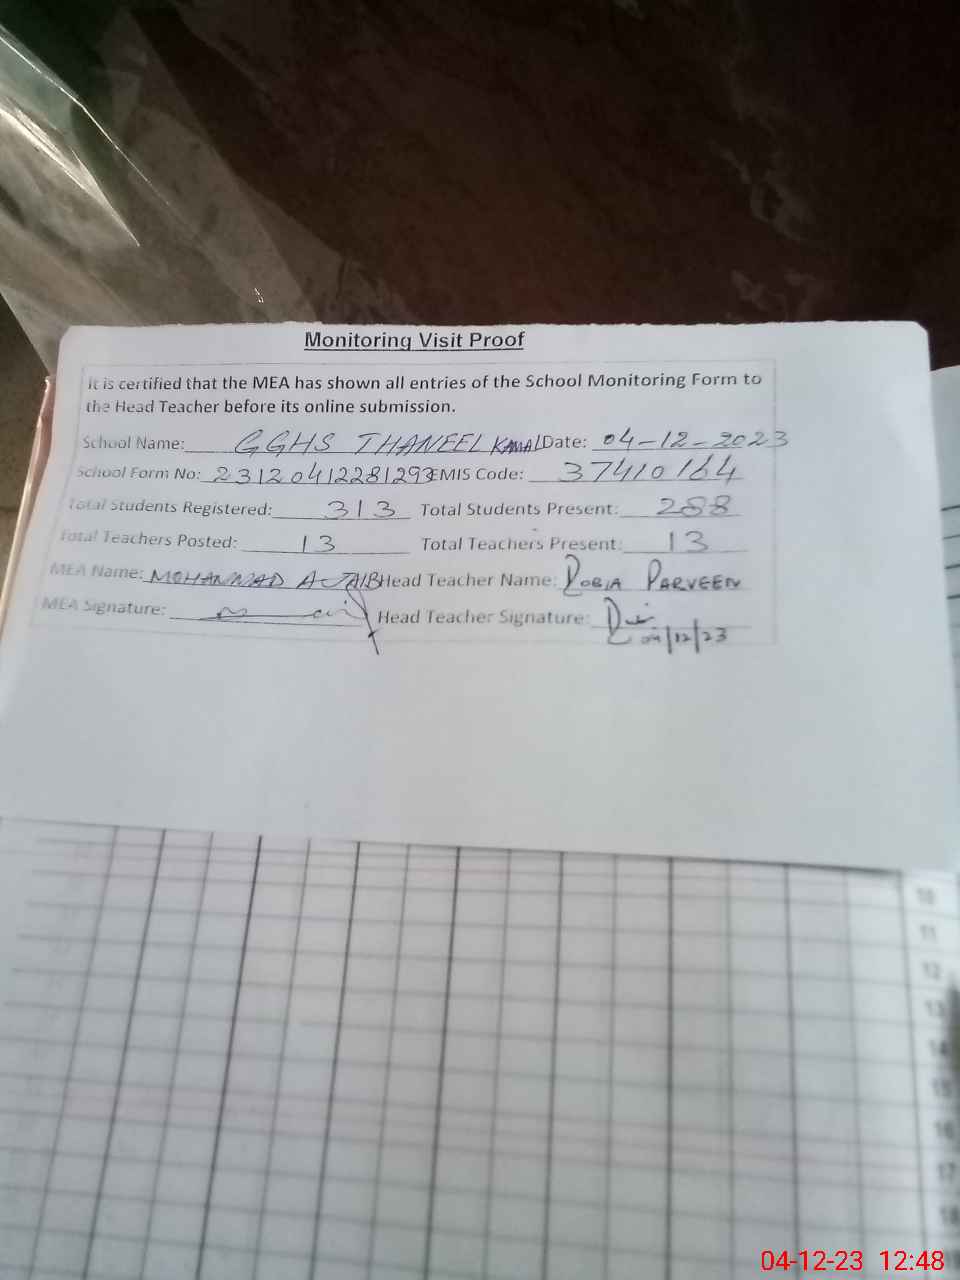 Monitoring Visit Proof
It is certified that the MEA has shown all entries of the School Monitoring Form to
the Head Teacher before its online submission.
School Name: GGHS THANEEL KAMAL Date: 04-12-2023
School Form No: 2312041228129 EMIS Code: 37410164
Total Students Registered: 313 Total Students Present: 288
Total Teachers Posted: 13 Total Teachers Present: 13
MEA Name: MOHAMMAD AJAIB Head Teacher Name: ROBIA PARVEEN
MEA Signature: Head Teacher Signature:
04/12/23
10
11
12
13
14
15
16
17
18
04-12-23 12:48